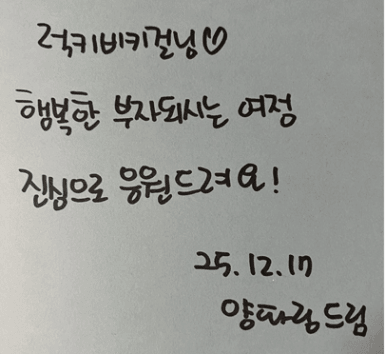 럭키비키걸닝♡
행복한 부자되시는 여정
진심으로 응원드려요!
25.12.17
양파링드림